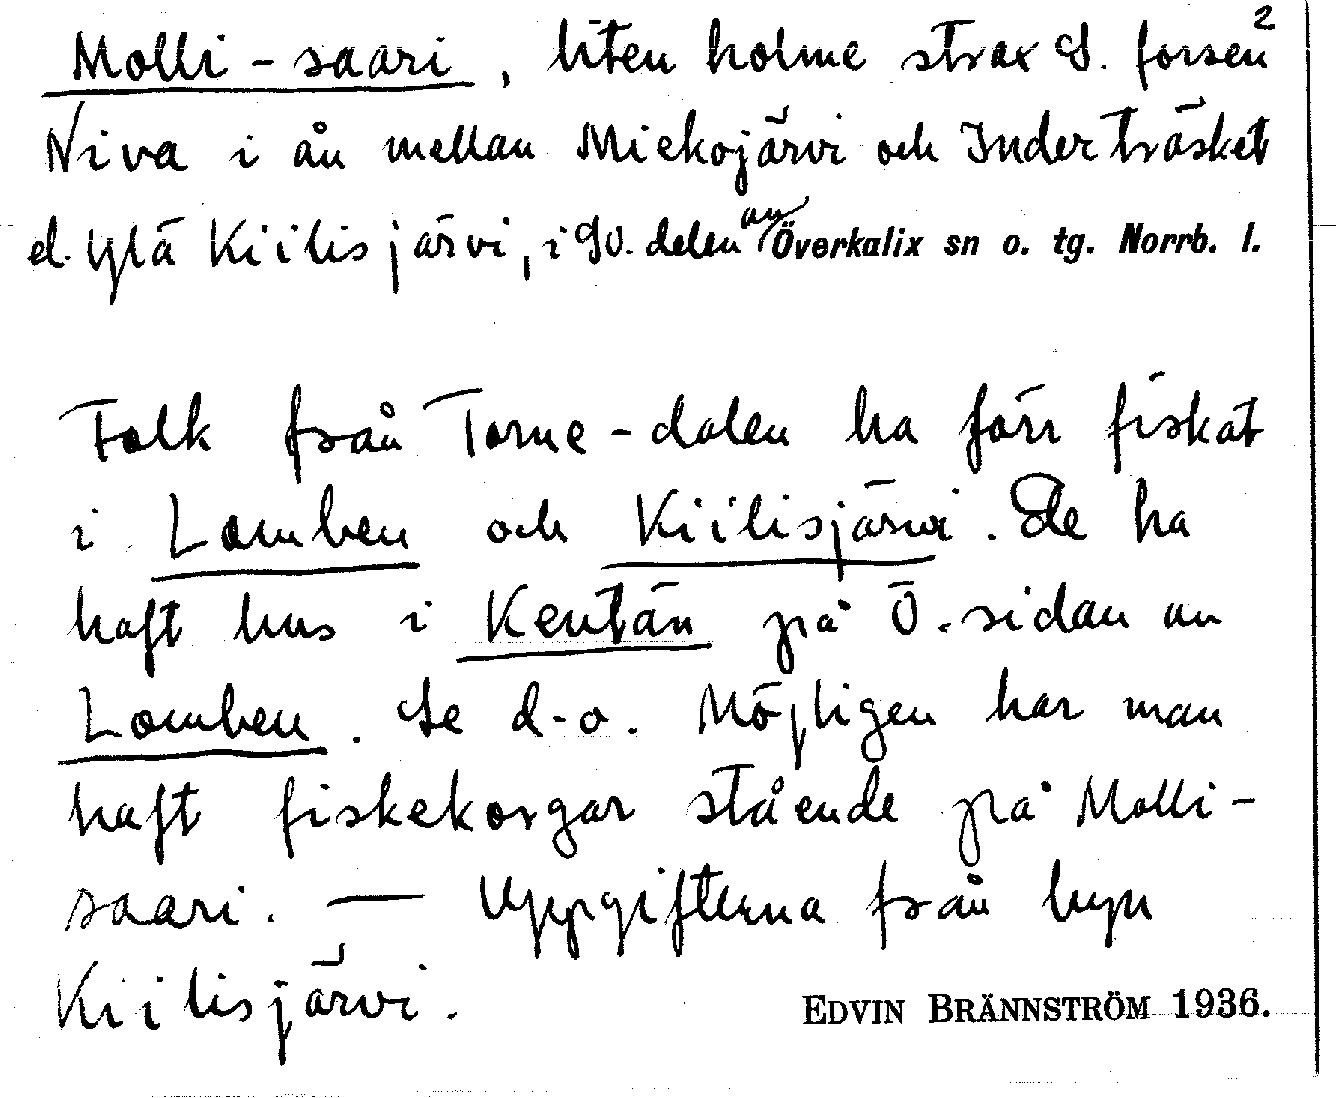 2
Molli-saari, liten holme strax S. forsen
Niva i ån mellan Miekojärvi och Inder träsket
el. Ylä Kiilisjärvi, i SO. delen av Överkalix sn o. tg. Norrb. l.
Folk från Torne-dalen ha förr fiskat
i Lomben och Kiilisjärvi. De ha
haft hus i Kentän på Ö. sidan av
Lomben. Se d-o. Möjligen har man
haft fiskekorgar stående på Molli-
saari. — Uppgifterna från byn
Kiilisjärvi.
EDVIN BRÄNNSTRÖM 1936.